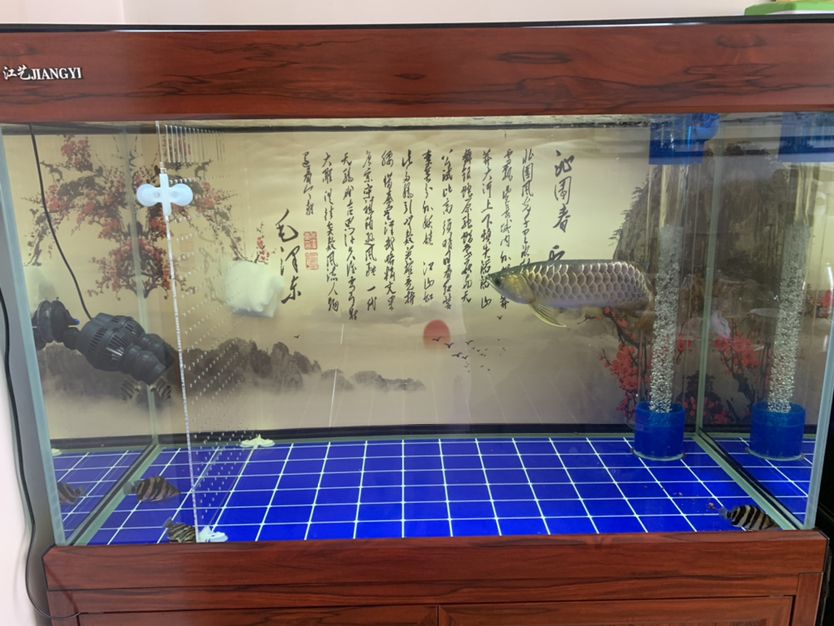 江艺JIANGYI
沁园春
北国风光千里冰
雪飘望长城内外惟余莽
莽大河上下顿失滔滔山
舞银蛇原驰蜡象欲与天
公试比高须晴日看红装
素裹分外妖娆 江山如
此多娇引无数英雄竞折
腰惜秦皇汉武略输文采
唐宗宋祖稍逊风骚一代
天骄成吉思汗只识弯弓射
大雕俱往矣数风流人物
还看今朝
毛泽东